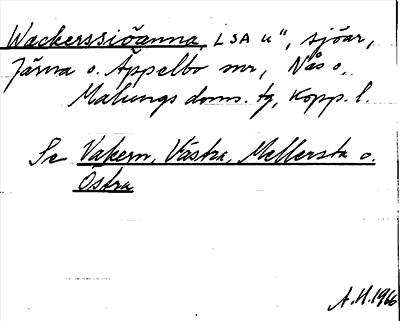 Wackerssiöarna, LSA u", sjöar,
Järna o. Äppelbo snr, Nås o.
Malungs doms. tg, Kopp. l.
Se Vakern, Västra, Mellersta o.
Östra
A.H. 1966